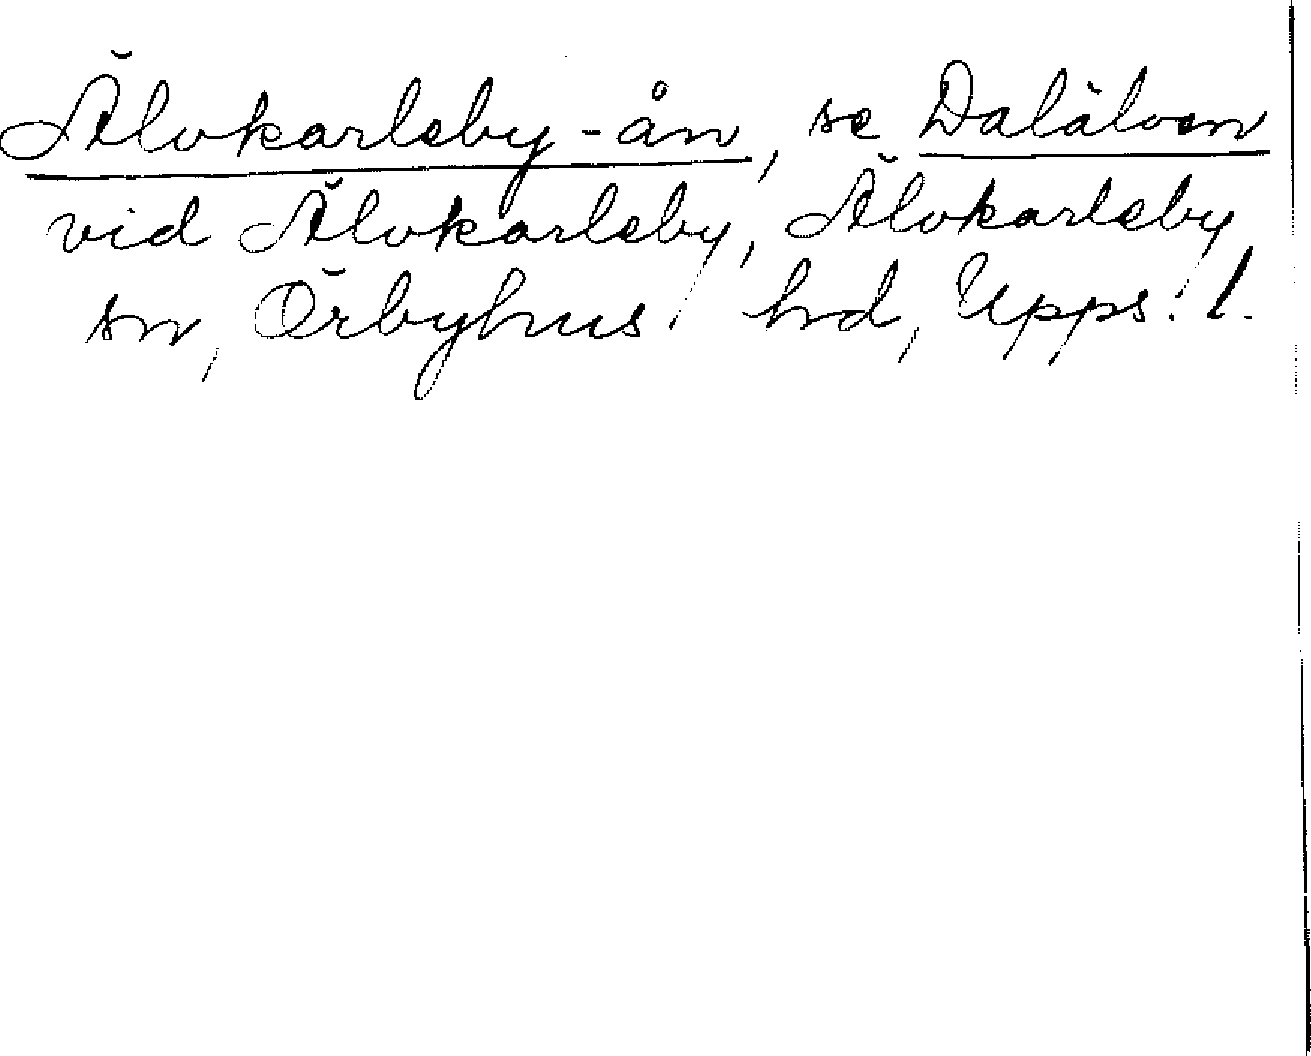 Älvkarleby-ån, se Dalälven
vid Älvkarleby, Älvkarleby
sn, Örbyhus hd, Upps. l.